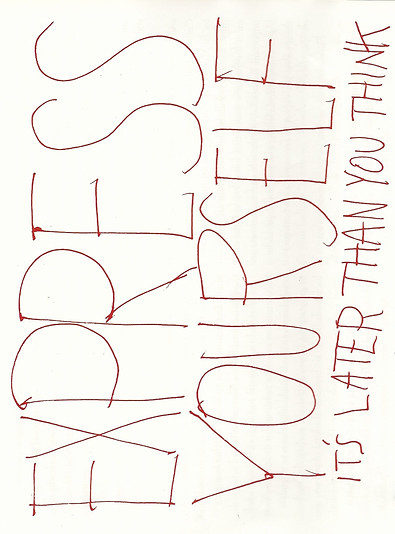 EXPRESS
YOURSELF
IT'S LATER THAN YOU THINK